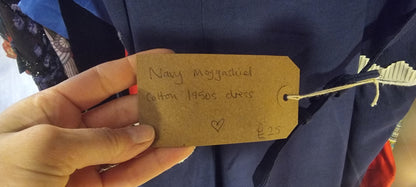 Navy moygashel
cotton 1950s dress
♡
£25